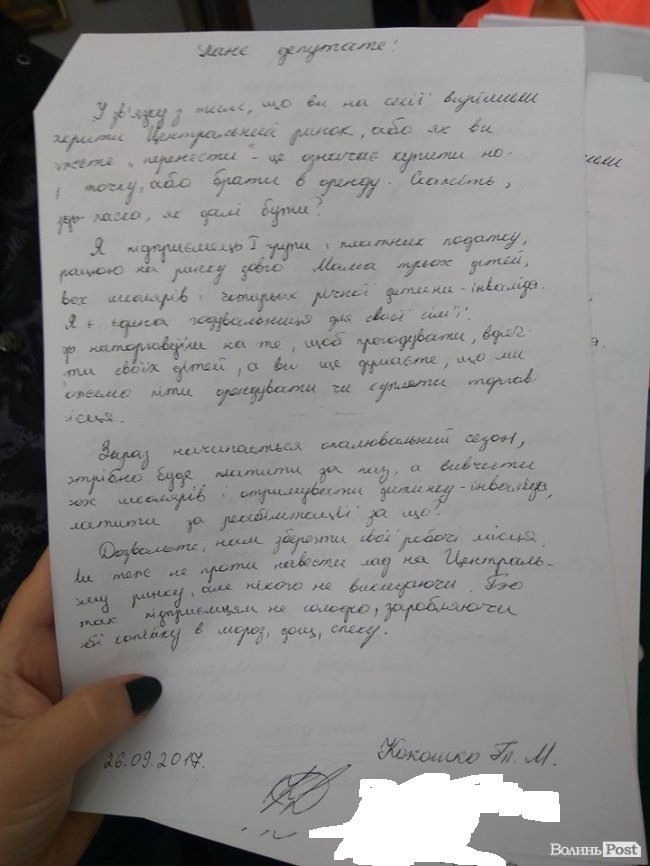 Пане депутате!
У зв'язку з тим, що ви на сесії вирішили
закрити Центральний ринок, або як ви
кажете "перенести" - це означає купити но-
точку, або брати в оренду. Скажіть,
ласка, як далі бути?
Я підприємець I групи і платник податку,
працюю на ринку довго. Мама трьох дітей,
двох школярів і чотирьох річної дитини-інваліда.
Я є єдина годувальниця для своєї сім'ї.
наторгавуїм на те, щоб прогодувати, вдяг-
ти своїх дітей, а ви ще думаєте, що ми
можемо піти орендувати чи купляти торгов
місця.
Зараз начинається опалювальний сезон,
потрібно буде платити за газ, а вивчити
двох школярів і отримувати дитинку-інваліда,
платити за реабілітації за що?
Дозвольте, нам зберегти свої робочі місця.
Ми теж не проти навести лад на Централь-
ному ринку, але нікого не викидаючи. Бо
так підприємцям не солодко, заробляючи
копійку в мороз, дощ, спеку.
26.09.2017.
Кокошко Г. М.
ВолиньPost